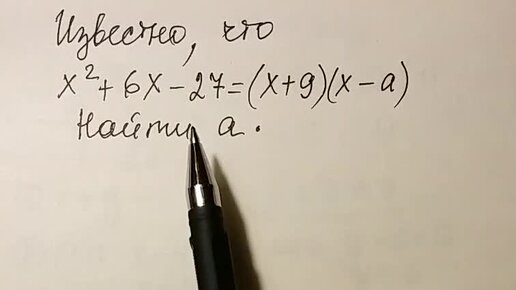 Известно, что
x² + 6x - 27 = (x+9)(x-a)
Найти a.